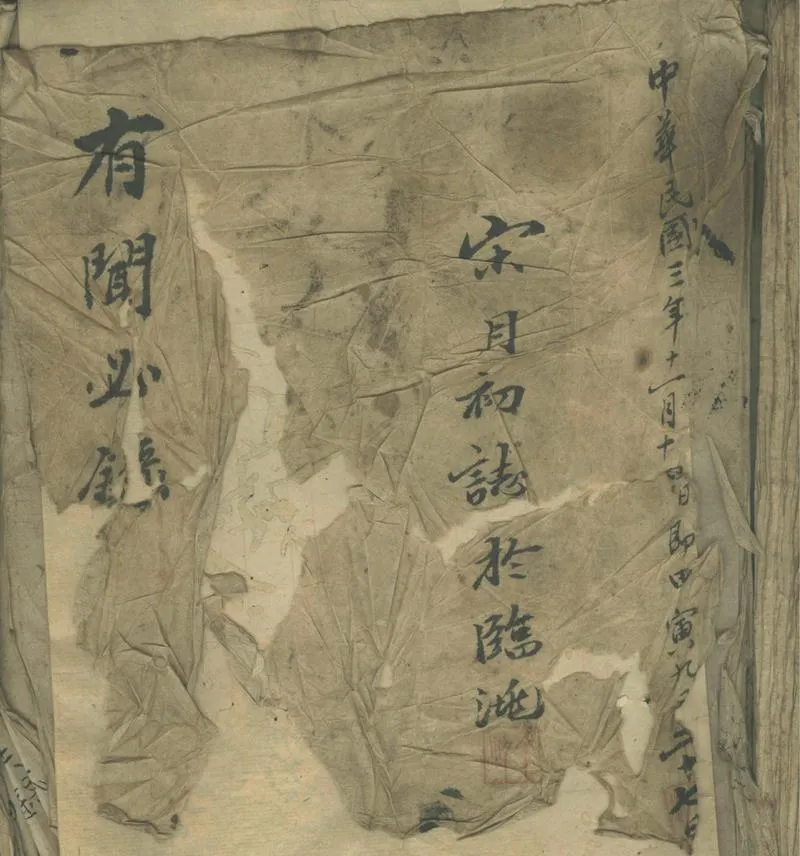 中華民國三年十一月十四日即甲寅九月二十七日
宋月初誌於臨洮
有聞必錄